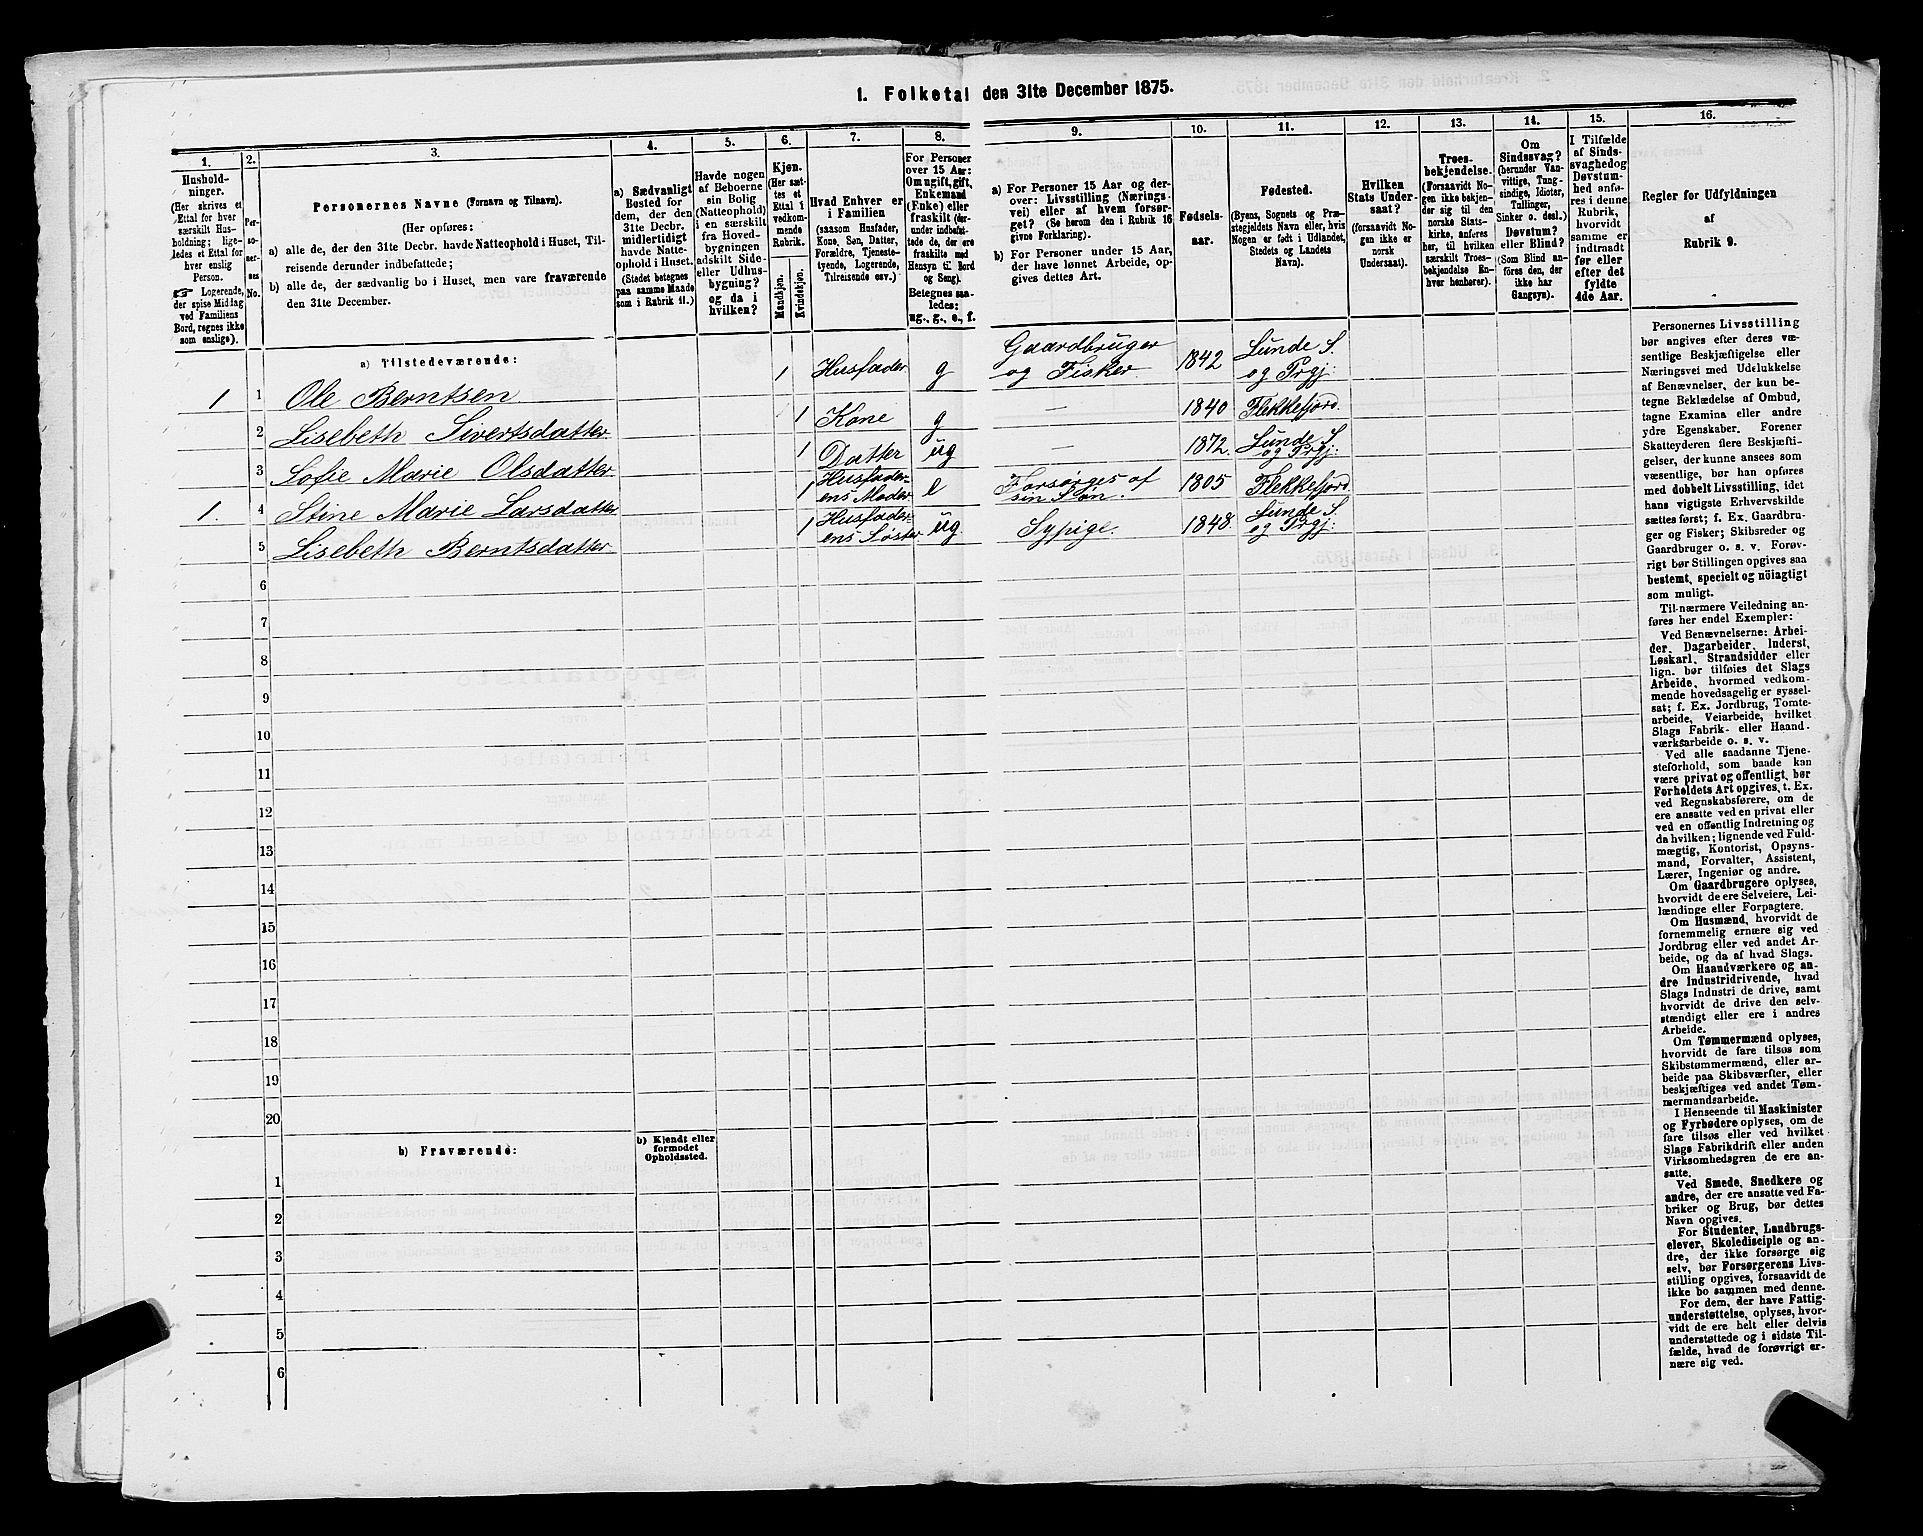 1. Folketal den 31te December 1875.
1.
2.
3.
4.
5.
6.
7.
8.
9.
10.
11.
12.
13.
14.
15.
16.
Hushold-
ninger.
(Her skrives et
Ettal for hver
særskilt Hus-
holdning; lige-
ledes et Ettal for
hver enslig
Person.
☞ Logerende,
der spise Middag
ved Familiens
Bord, regnes ikke
som enslige).
Per-
so-
ner-
nes
No.
Personernes Navne (Fornavn og Tilnavn).
(Her opføres:
a) alle de, der den 31te Decbr. havde Natteophold i Huset, Til-
reisende derunder indbefattede;
b) alle de, der sædvanlig bo i Huset, men vare fraværende
den 31te December.
a) Sædvanligt
Bosted for
dem, der den
31te Decbr.
midlertidigt
havde Natte-
ophold i Huset.
(Stedet betegnes
paa samme Maade
som i Rubrik 11.)
Havde nogen
af Beboerne
sin Bolig
(Natteophold)
i en særskilt
fra Hoved-
bygningen
adskilt Side-
eller Udhus-
bygning?
og da i
hvilken?
Kjøn.
(Her sæt-
tes et
Ettal i
vedkom-
mende
Rubrik.
Mandkjøn.
Kvindekjøn.
Hvad Enhver er
i Familien
(saasom Husfader,
Kone, Søn, Datter,
Forældre, Tjeneste-
tyende, Logerende,
Tilreisende osv.)
For Personer
over 15 Aar:
Om ugift, gift,
Enkemand
(Enke) eller
fraskilt (der-
under indbefat-
tede de, der ere
fraskilte med
Hensyn til Bord
og Seng).
Betegnes saa-
ledes:
ug., g., e., f.
a) For Personer 15 Aar og der-
over: Livsstilling (Nærings-
vei) eller af hvem forsør-
get? (Se herom den i Rubrik 16
givne Forklaring).
b) For Personer under 15 Aar,
der have lønnet Arbeide, op-
gives dettes Art.
Fødsels-
aar.
Fødested.
(Byens, Sognets og Præ-
stegjeldets Navn eller, hvis
Nogen er født i Udlandet,
Stedets og Landets
Navn).
Hvilken
Stats Under-
saat?
(forsaavidt No-
gen ikke er
norsk
Undersaat).
Troes-
bekjendelse.
(Forsaavidt No-
gen ikke bekjen-
der sig til den
norske Stats-
kirke, anføres
her, til hvilken
særskilt Troes-
bekjendelse En-
hver henhører).
Om
Sindssvag?
(herunder Van-
vittige, Tung-
sindige, Idioter,
Tullinger,
Sinker o. desl.)
Døvstum?
eller Blind?
(Som Blind an-
føres den, der
ikke har
Gangsyn).
I Tilfælde
af Sinds-
svaghed og
Døvstum-
hed anfø-
res i denne
Rubrik,
hvorvidt
samme er
indtraadt
før eller
efter det
fyldte
4de Aar.
Regler for Udfyldningen
af
Rubrik 9.
a) Tilstedeværende:
1 1 Ole Berntsen 1 Husfader g Gaardbruger og Fisker. 1842 Lunde S. og Prgj:
2 Lisebeth Sivertsdatter 1 Kone g — 1840 Flekkefjord.
3 Sofie Marie Olsdatter 1 Datter ug — 1872. Lunde S. og Prgj:
1. 4 Stine Marie Larsdatter 1 Husfaderens Moder e Forsørges af sin Søn. 1805 Flekkefjord
5 Lisebeth Berntsdatter 1 Husfaderens Søster ug Sypige. 1848. Lunde S. og Prgj:
6
7
8
9
10
11
12
13
14
15
16
17
18
19
20
b) Fraværende:
b) Kjendt eller
formodet
Opholdssted.
1
2
3
4
5
6
Personernes Livsstilling
bør angives efter deres væ-
sentlige Beskjæftigelse eller
Næringsvei med Udelukkelse
af Benævnelser, der kun be-
tegne Beklædelse af Ombud,
tagne Examina eller andre
ydre Egenskaber. Forener
Skatteyderen flere Beskjæfti-
gelser, der kunne ansees som
væsentlige, bør han opføres
med dobbelt Livsstilling, idet
hans vigtigste Erhvervskilde
sættes først; f. Ex. Gaardbru-
ger og Fisker; Skibsreder og
Gaardbruger o. s. v. Forøv-
rigt bør Stillingen opgives saa
bestemt, specielt og nöiagtigt
som muligt.
Til nærmere Veiledning an-
føres her endel Exempler:
Ved Benævnelserne: Arbei-
der, Dagarbeider, Inderst,
Løskarl, Strandsidder eller
lign. bør tilføies det Slags
Arbeide, hvormed vedkom-
mende hovedsagelig er syssel-
sat; f. Ex. Jordbrug, Tomte-
arbeide, Veiarbeide, hvilket
Slags Fabrik- eller Haand-
værksarbeide o. s. v.
Ved alle saadanne Tjene-
steforhold, som baade kan
være privat og offentligt, bør
Forholdets Art opgives, t. Ex.
ved Regnskabsførere, om de
ere ansatte ved en privat eller
ved en offentlig Indretning og
da hvilken; lignende ved Fuld-
mægtig, Kontorist, Opsyns-
mand, Forvalter, Assistent,
Lærer, Ingeniør og andre.
Om Gaardbrugere oplyses,
hvorvidt de ere Selveiere, Lei-
lændinge eller Forpagtere.
Om Husmænd, hvorvidt de
fornemmelig ernære sig ved
Jordbrug eller ved andet Ar-
beide, og da af hvad Slags.
Om Haandværkere og an-
dre Industridrivende, hvad
Slags Industri de drive, samt
hvorvidt de drive den selv-
stændigt eller ere i andres
Arbeide.
Om Tømmermænd oplyses,
hvorvidt de fare tilsøs som
Skibstømmermænd, eller ar-
beide paa Skibsværfter, eller
beskjæftiges ved andet Tøm-
mermandsarbeide.
I Henseende til Maskinister
og Fyrbødere oplyses, om de
fare tilsøs eller ved hvilket
Slags Fabrikdrift eller anden
Virksomhedsgren de ere an-
satte.
Ved Smede, Snedkere og
andre, der ere ansatte ved Fa-
briker og Brug, bør dettes
Navn opgives.
For Studenter, Landbrugs-
elever, Skoledisciple og an-
dre, der ikke forsørge sig
selv, bør Forsørgerens Livs-
stilling opgives, forsaavidt de
ikke bo sammen med denne.
For dem, der have Fattig-
understøttelse, oplyses, hvor-
vidt de ere helt eller delvis
understøttede og i sidste Til-
fælde, hvad de forøvrigt er-
nære sig ved.